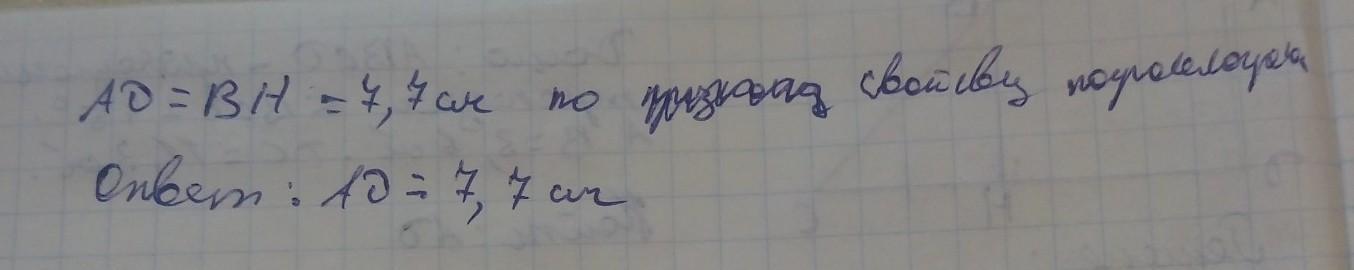 AD = BH = 7,7 см по свойству параллелограмма
Ответ: AD = 7,7 см